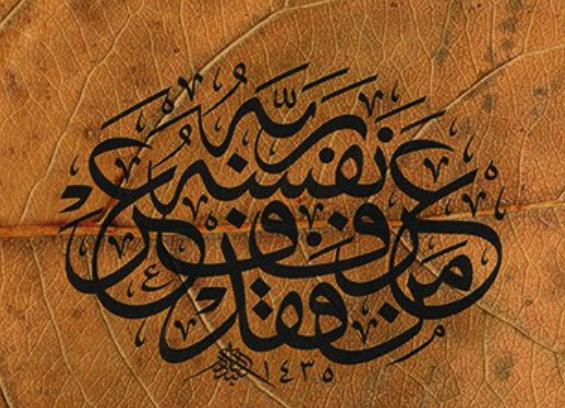 من عرف نفسه فقد عرف ربه
١٤٣٥